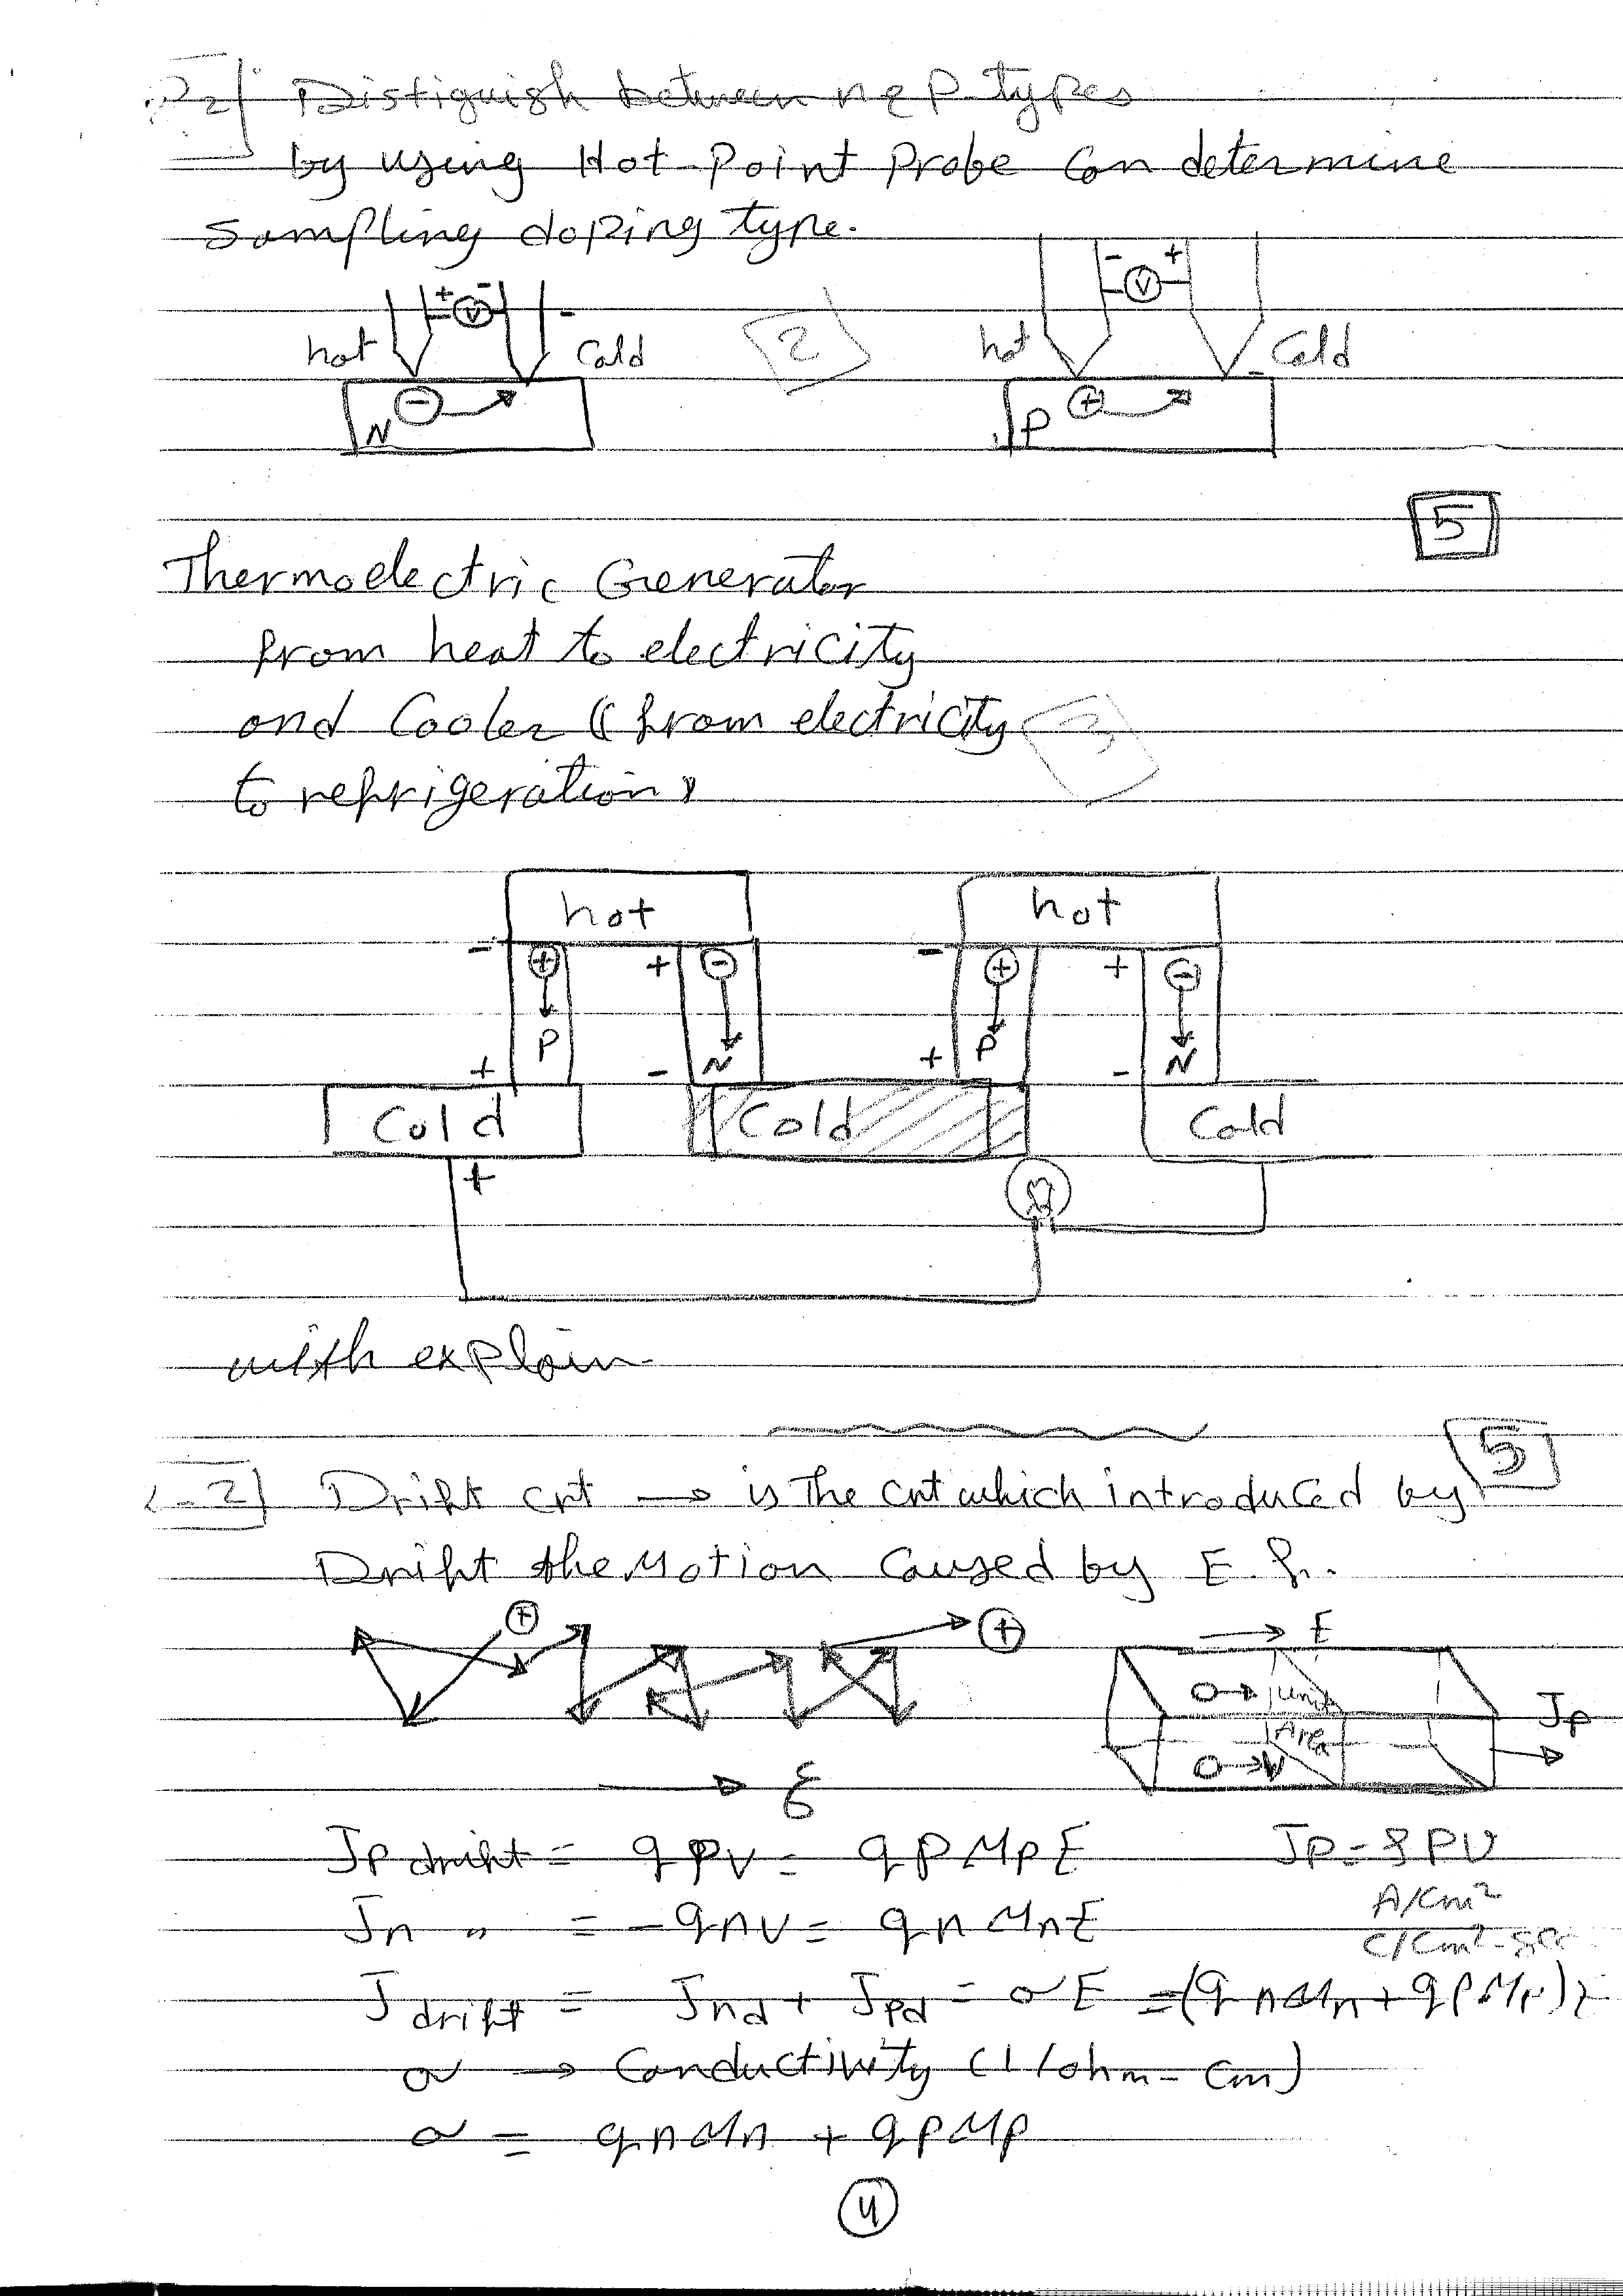 2] Distiguish between n & p types
by using Hot-Point Probe Can determine
Sampling doping type.
+ V - -
- V +
hot Cold 2 hot Cold
N - P +
5
Thermoelectric Generator
from heat to electricity
and Cooler ((from electricity 3
to refrigeration))
hot hot
- + + - - + + -
+ P - N + P - N
Cold Cold Cold
+
with explain
5
-2] Drift crt → is The crt which introduced by
Drift the Motion Caused by E.f.
+ + → E
unit
Area
Jp
→ ℰ
Jp drift = qpv = qpμpE Jp = qpv
A/cm²
Jn " = -qnv = qnμnE
C/cm²-sec
J drift = Jnd + Jpd = σE = (qnμn + qpμp)
σ → Conductivity (1/ohm-cm)
σ = qnμn + qpμp
4